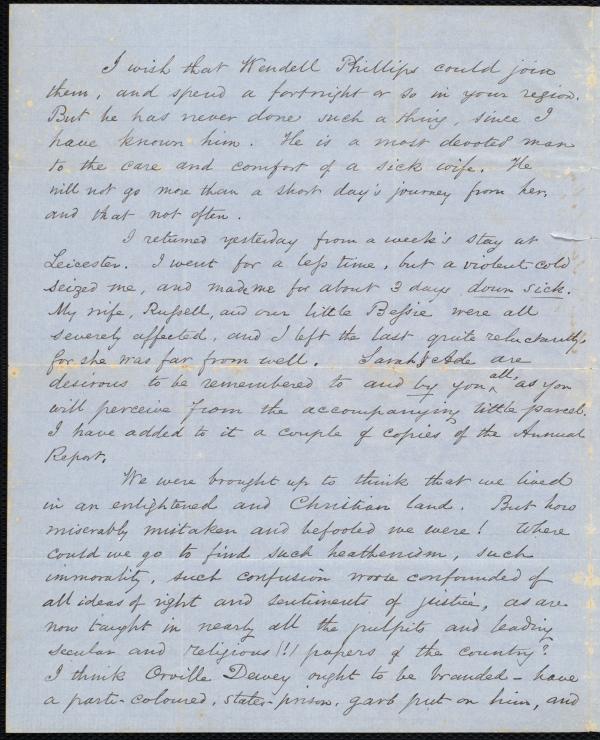 I wish that Wendell Phillips could join
them, and spend a fortnight or so in your region.
But he has never done such a thing, since I
have known him. He is a most devoted man
to the care and comfort of a sick wife. He
will not go more than a short day's journey from her,
and that not often.
I returned yesterday from a week's stay at
Leicester. I went for a less time, but a violent cold
seized me, and made me for about 3 days down sick.
My wife, Russell, and our little Bessie were all
severely affected, and I left the last quite reluctantly,
for she was far from well. Sarah & Ade are
desirous to be remembered to and by you all, as you
will perceive from the accompanying little parcel.
I have added to it a couple of copies of the Annual
Report.
We were brought up to think that we lived
in an enlightened and Christian land. But how
miserably mistaken and befooled we were! Where
could we go to find such heathenism, such
immorality, such confusion worse confounded of
all ideas of right and sentiments of justice, as are
now taught in nearly all the pulpits and leading
secular and religious (!) papers of the country?
I think Orville Dewey ought to be branded - have
a parti-coloured, states-prison, garb put on him, and